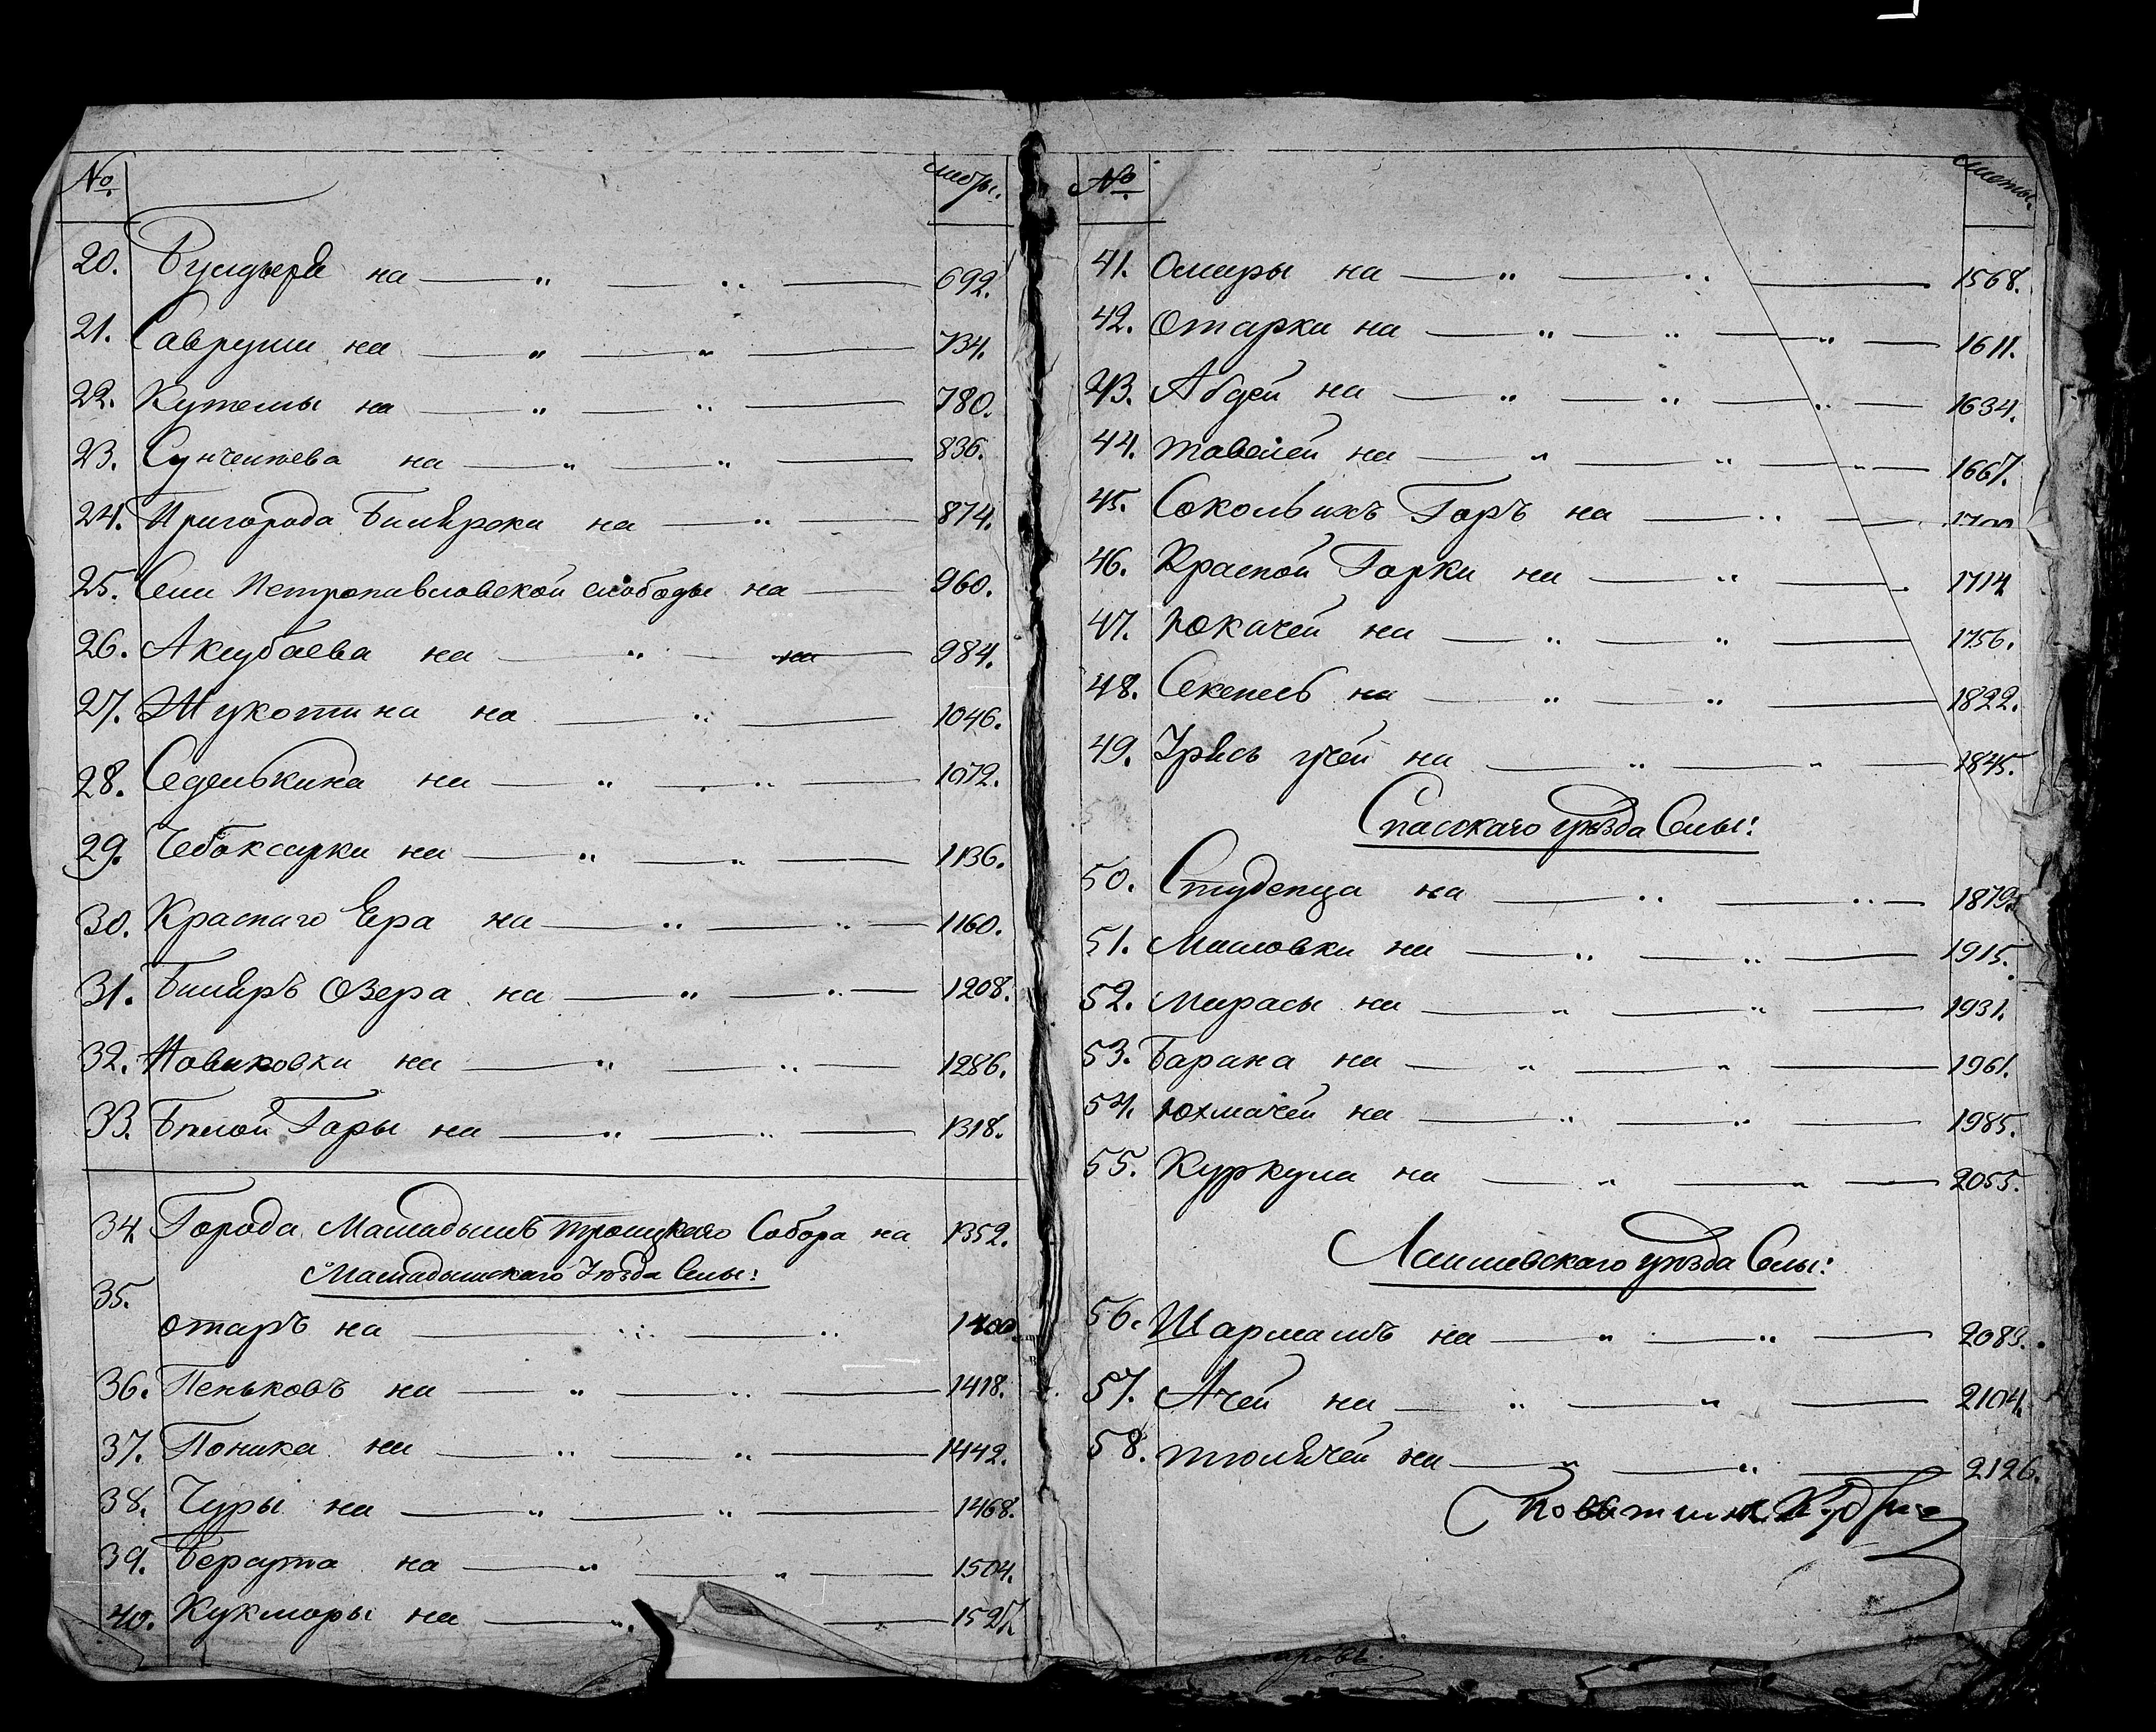 № листы.
20. Булдыря на — " — " — 692.
21. Савруши на — " — " — 734.
22. Кутемы на — " — " — 780.
23. Сунчелеева на — " — " — 836.
24. Пригорода Билярска на — " — 874.
25. Села Петропавловской слободы на — 960.
26. Акубаева на — " — 984.
27. Жукотина на — " — 1046.
28. Седелькина на — " — " — 1072.
29. Чебоксарки на — " — " — 1136.
30. Краснаго Яра на — " — " — 1160.
31. Биляръ Озера на — " — " — 1208.
32. Новиковки на — " — " — 1286.
33. Белой Горы на — " — " — 1318.
34. Города Мамадышъ Троицкаго Собора на 1352.
Мамадышскаго Уезда Селы:
35.
Отаръ на — " — " 1400
36. Пеньковъ на — " — " — 1418.
37. Поника на — " — " — 1442.
38. Чуры на — " — " — 1468.
39. Берсута на — " — " — 1504.
40. Кукморы на — " — 1527.
№ листы.
41. Омары на — " — " — 1568.
42. Отарки на — " — " — " — 1611.
43. Абдей на — " — " — " — 1634.
44. Тавелей на — " — " — " — 1667.
45. Сокольихъ Горъ на — " — 1700
46. Красной Горки на — " — 1714
47. Юкачей на — " — " — 1756.
48. Секенесь на — " — " — 1822.
49. Урясь учей на — " — " — 1845.
Спасскаго уезда Селы:
50. Студенца на — " — " — 1879.
51. Масловки на — " — " — 1915.
52. Мурасы на — " — " — 1931.
53. Барана на — " — " — 1961.
54. Юхмачей на — " — " — 1985.
55. Куркула на — " — " — 2055.
Лаишевскаго уезда Селы:
56. Шармашъ на — " — " — 2083.
57. Ачей на — " — " — 2104.
58. Тюлячей на — " — " — 2126.